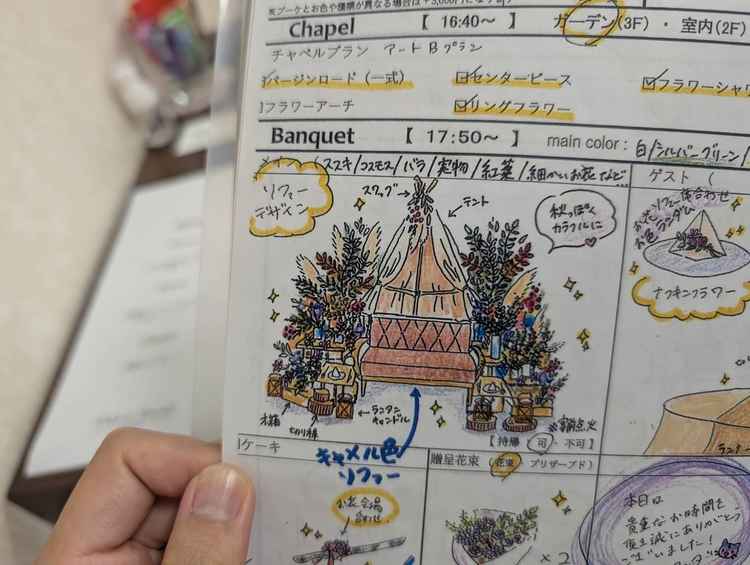 ※ブーケとお色や種類が異なる場合は
Chapel 【 16:40～ 】 ガーデン(3F) ・ 室内(2F)
チャペルプラン アートBプラン
バージンロード (一式) センターピース フラワーシャワ
フラワーアーチ リングフラワー
Banquet 【 17:50～ 】 main color : 白/シルバーグリーン/
ススキ/コスモス/バラ/実物/紅葉/細かいお花など…
ゲスト (
ソファー
デザイン
スワッグ
テント
秋っぽく
カラフルに
木箱
切り株
ランタン
キャンドル
【 持帰 可 ・ 不可 】
キャメル色
ソファー
お花ソファー装合わせ
お色ランダム
ナフキンフラワー
ケーキ
お花会場
合わせ
贈呈花束 ( 花束 プリザーブド)
×2
本日は
貴重なお時間を
頂き誠にありがとう
ございました!